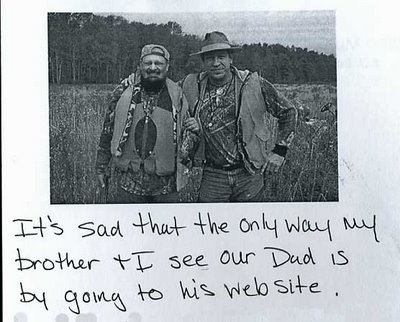 It's sad that the only way my
brother + I see our Dad is
by going to his website.